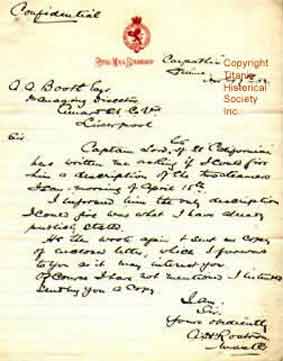 Confidential
ROYAL MAIL STEAMSHIP
Carpathia
Copyright
Titanic
Historical
Society
Inc.
A. A. Booth Esq
Managing Director
Cunard
Liverpool
Sir
Captain Lord, of
has written me asking if I could give
him a description of the two steamers
I saw morning of April 15th.
I informed him the only description
I could give was what I have already
publicly stated.
He wrote again & sent me copy
of enclosed letter, which I forward
to you as it may interest you
Of course I have not mentioned I intended
sending you a copy
I am
Sir
Yours obediently
A H Rostron